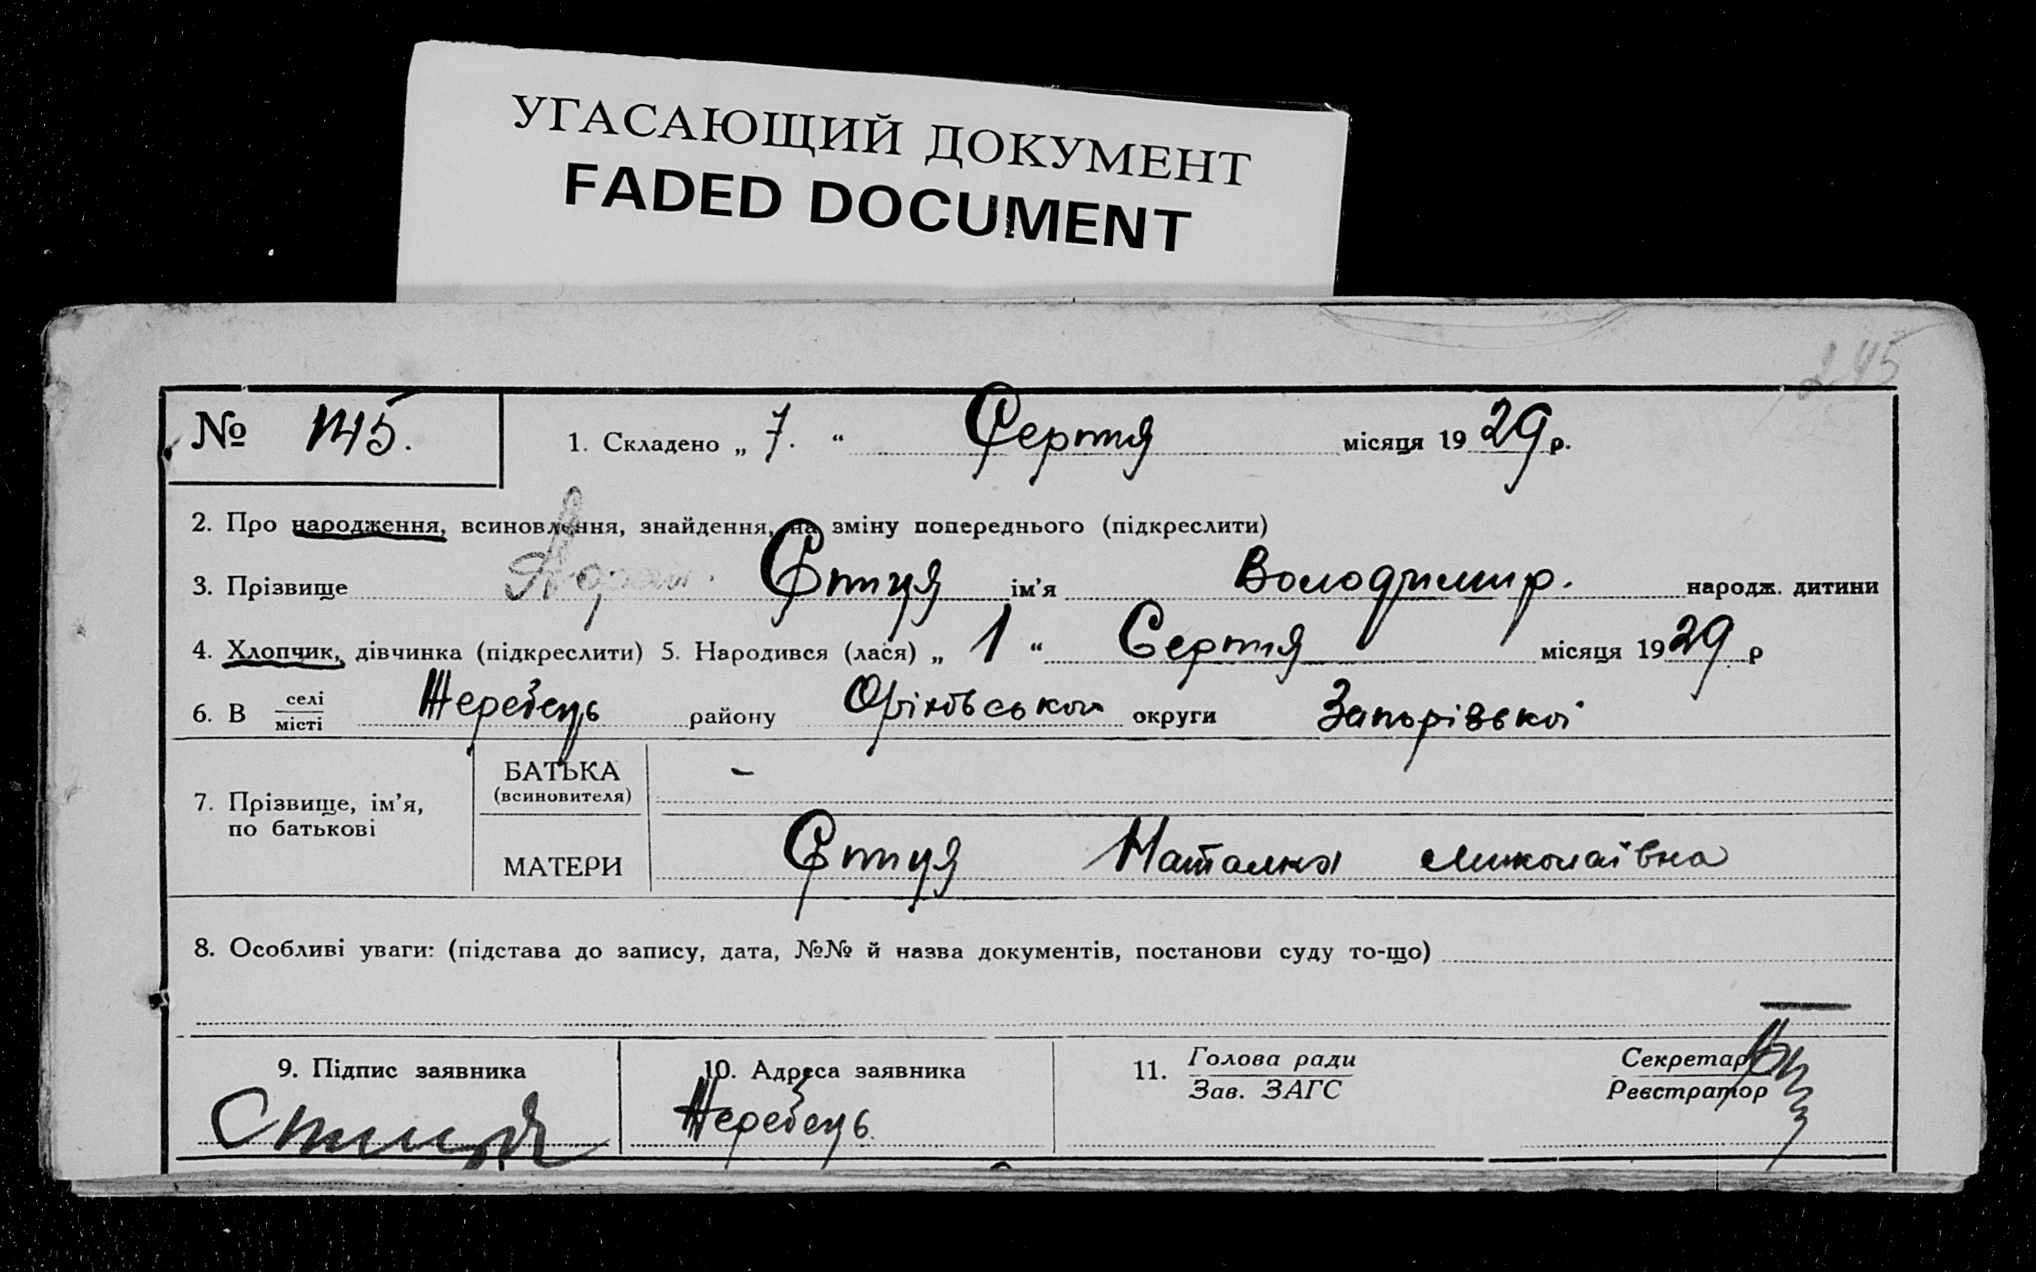 УГАСАЮЩИЙ ДОКУМЕНТ
FADED DOCUMENT
245
№ 145. 1. Складено „ 7. “ Серпня місяця 1929 р.
2. Про народження, всиновлення, знайдення, на зміну попереднього (підкреслити)
3. Прізвище Ститя ім’я Володимир. народж. дитини
4. Хлопчик, дівчинка (підкреслити) 5. Народився (лася) „ 1 “ Серпня місяця 1929 р
6. В селі місті Жеребець району Оріхівської округи Запорізької
7. Прізвище, ім’я, по батькові
БАТЬКА (всиновителя) –
МАТЕРИ Наталка Миколаївна
8. Особливі уваги: (підстава до запису, дата, №№ й назва документів, постанови суду то-що)
9. Підпис заявника 10. Адреса заявника 11. Голова ради Зав. ЗАГС Секретар Реєстратор
Жеребець